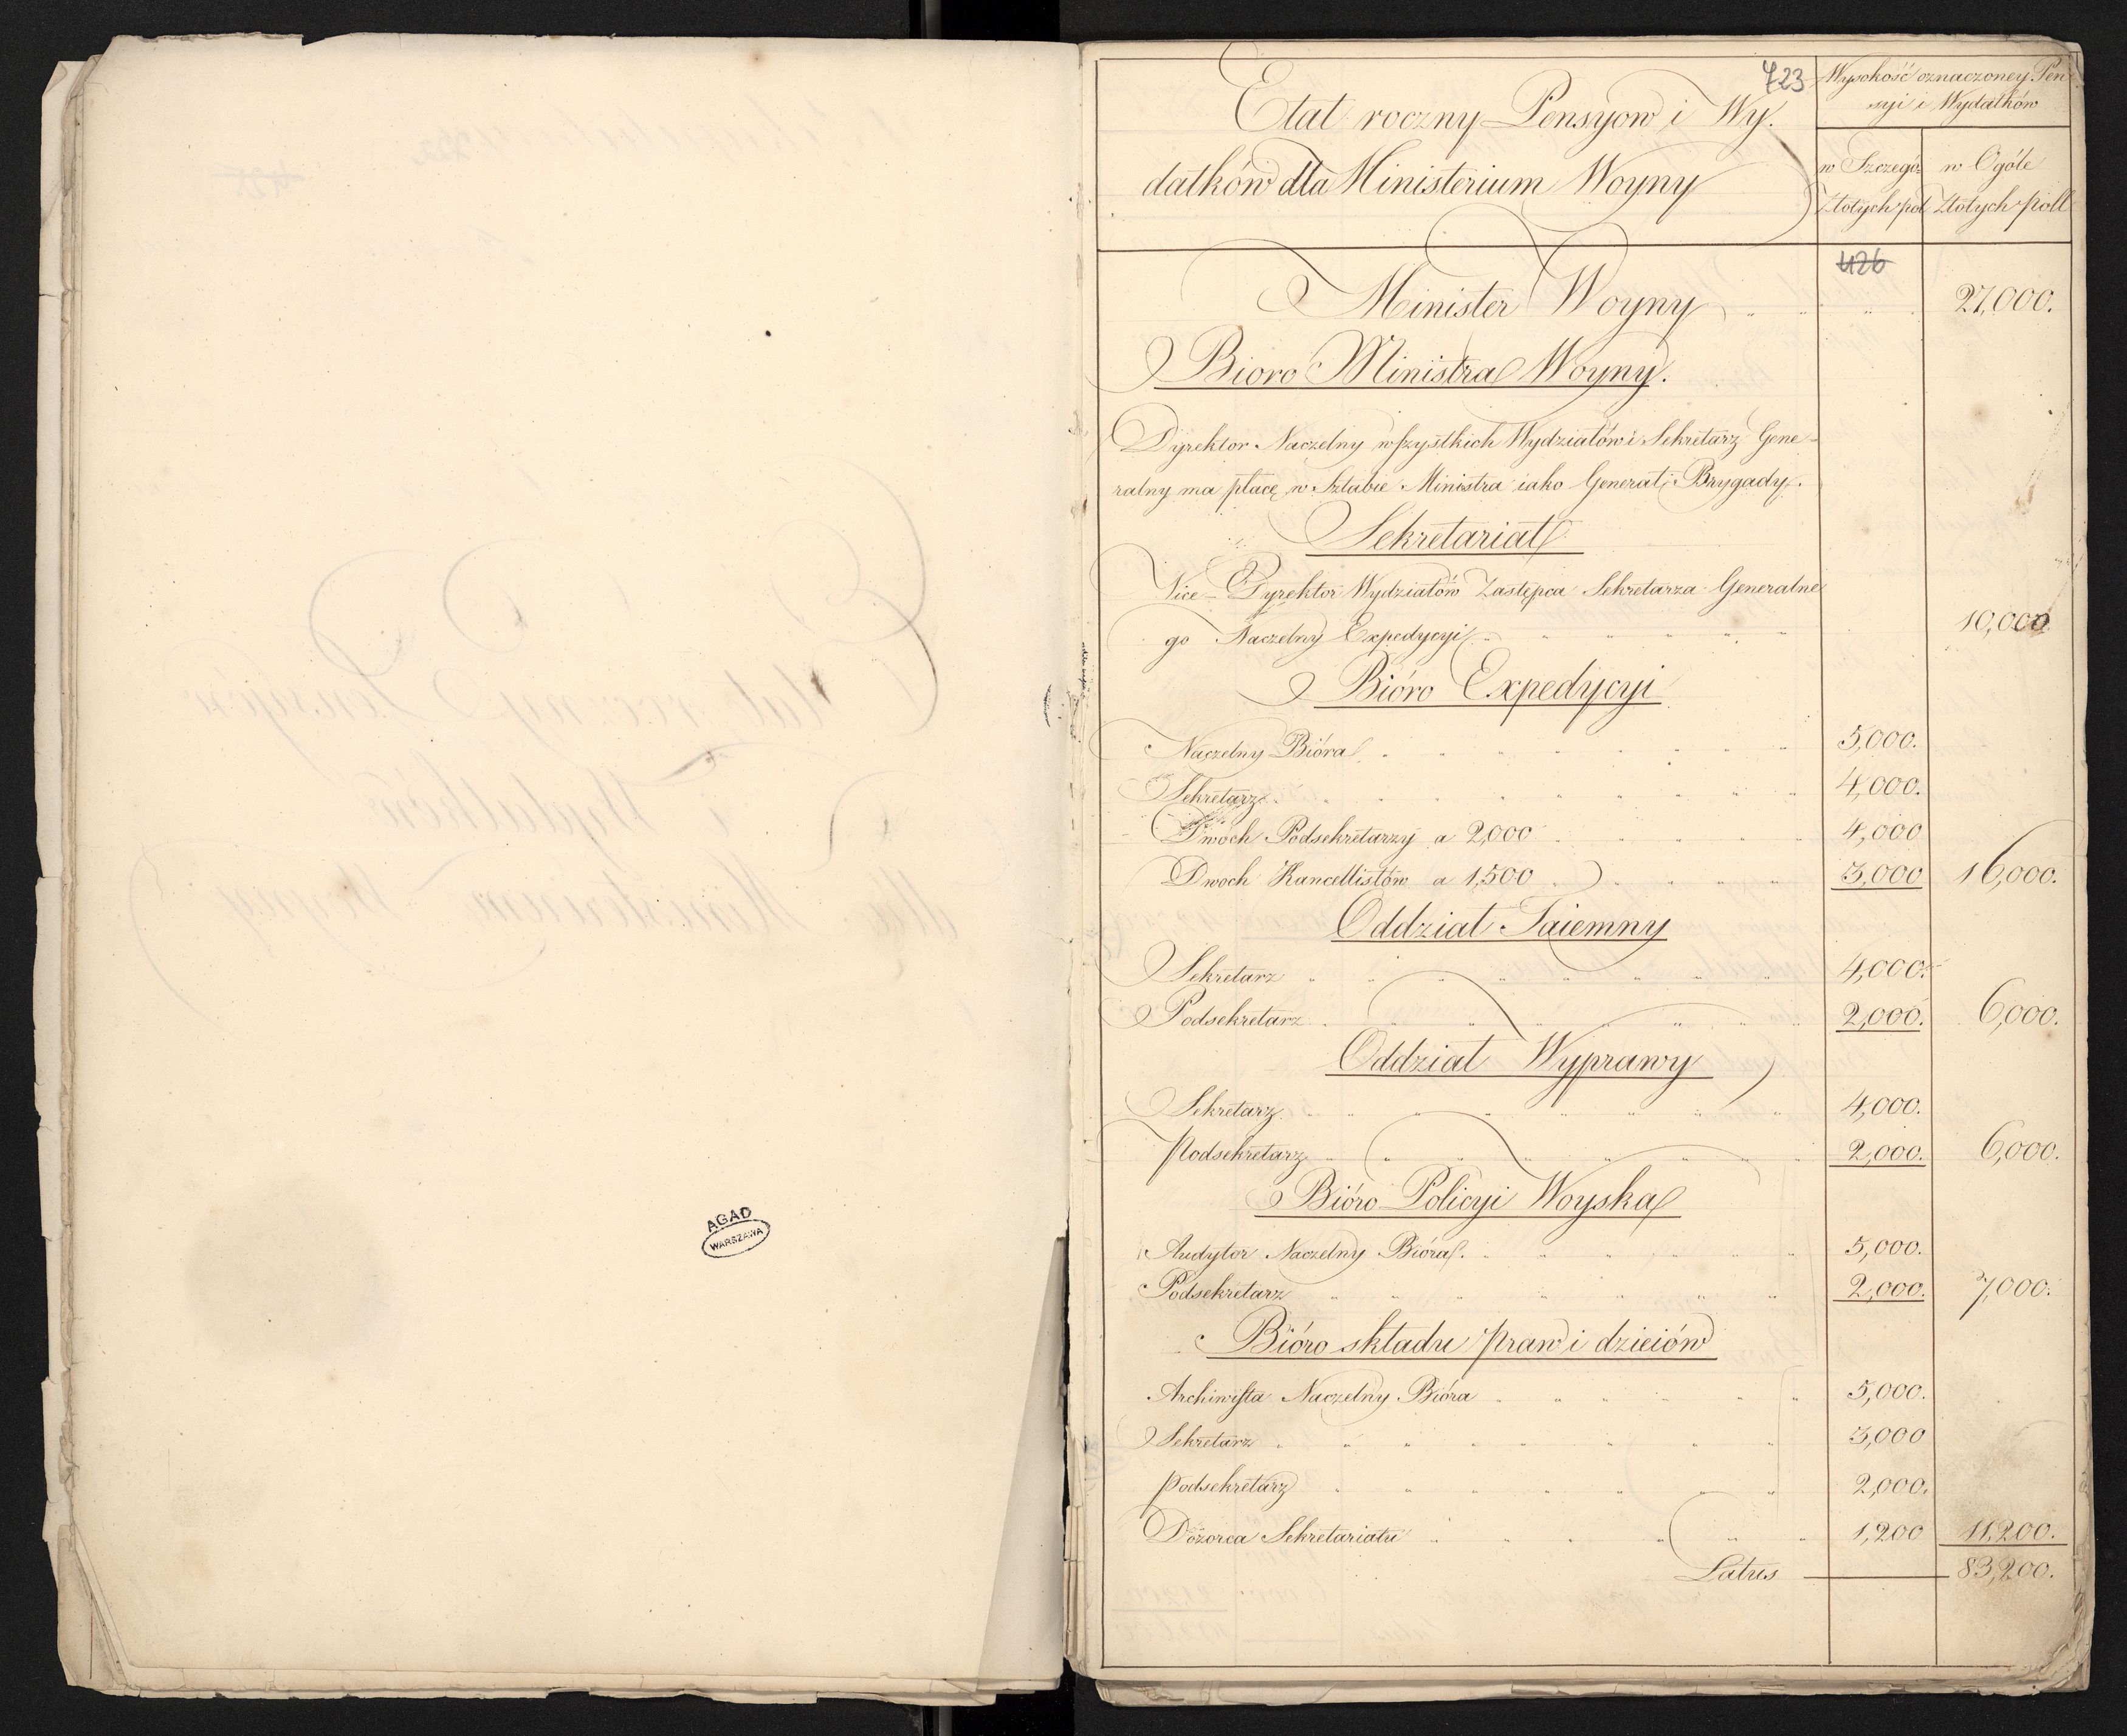 AGAD
WARSZAWA
423
Etat roczny Pensyow i Wy.
datków dla Ministerium Woyny
Wysokość oznaczoney Pen
syi i Wydatków
w Szczegó: w Ogóle
Złotych pol Złotych poll
426
Minister Woyny 27,000.
Bioro Ministra Woyny.
Dyrektor Naczelny wszystkich Wydziałów i Sekretarz Gene-
ralny ma płacę w Sztabie Ministra iako Generał Brygady.
Sekretariat
Vice-Dyrektor Wydziałów Zastępca Sekretarza Generalne
go Naczelny Expedycyi 10,000
Bióro Expedycyi
Naczelny Bióra 5,000.
Sekretarz 4,000.
Dwoch Podsekretarzy a 2,000 4,000
Dwoch Kancellistów a 1,500 3,000 16,000.
Oddział Taiemny
Sekretarz 4,000.
Podsekretarz 2,000. 6,000.
Oddział Wyprawy
Sekretarz 4,000.
Podsekretarz 2,000. 6,000.
Bióro Policyi Woyska
Audytor Naczelny Bióra 5,000.
Podsekretarz 2,000. 7,000.
Bióro składu praw i dzieiów
Archiwista Naczelny Bióra 5,000.
Sekretarz 3,000
Podsekretarz 2,000.
Dozorca Sekretariatu 1,200 11,200.
Latus 83,200.